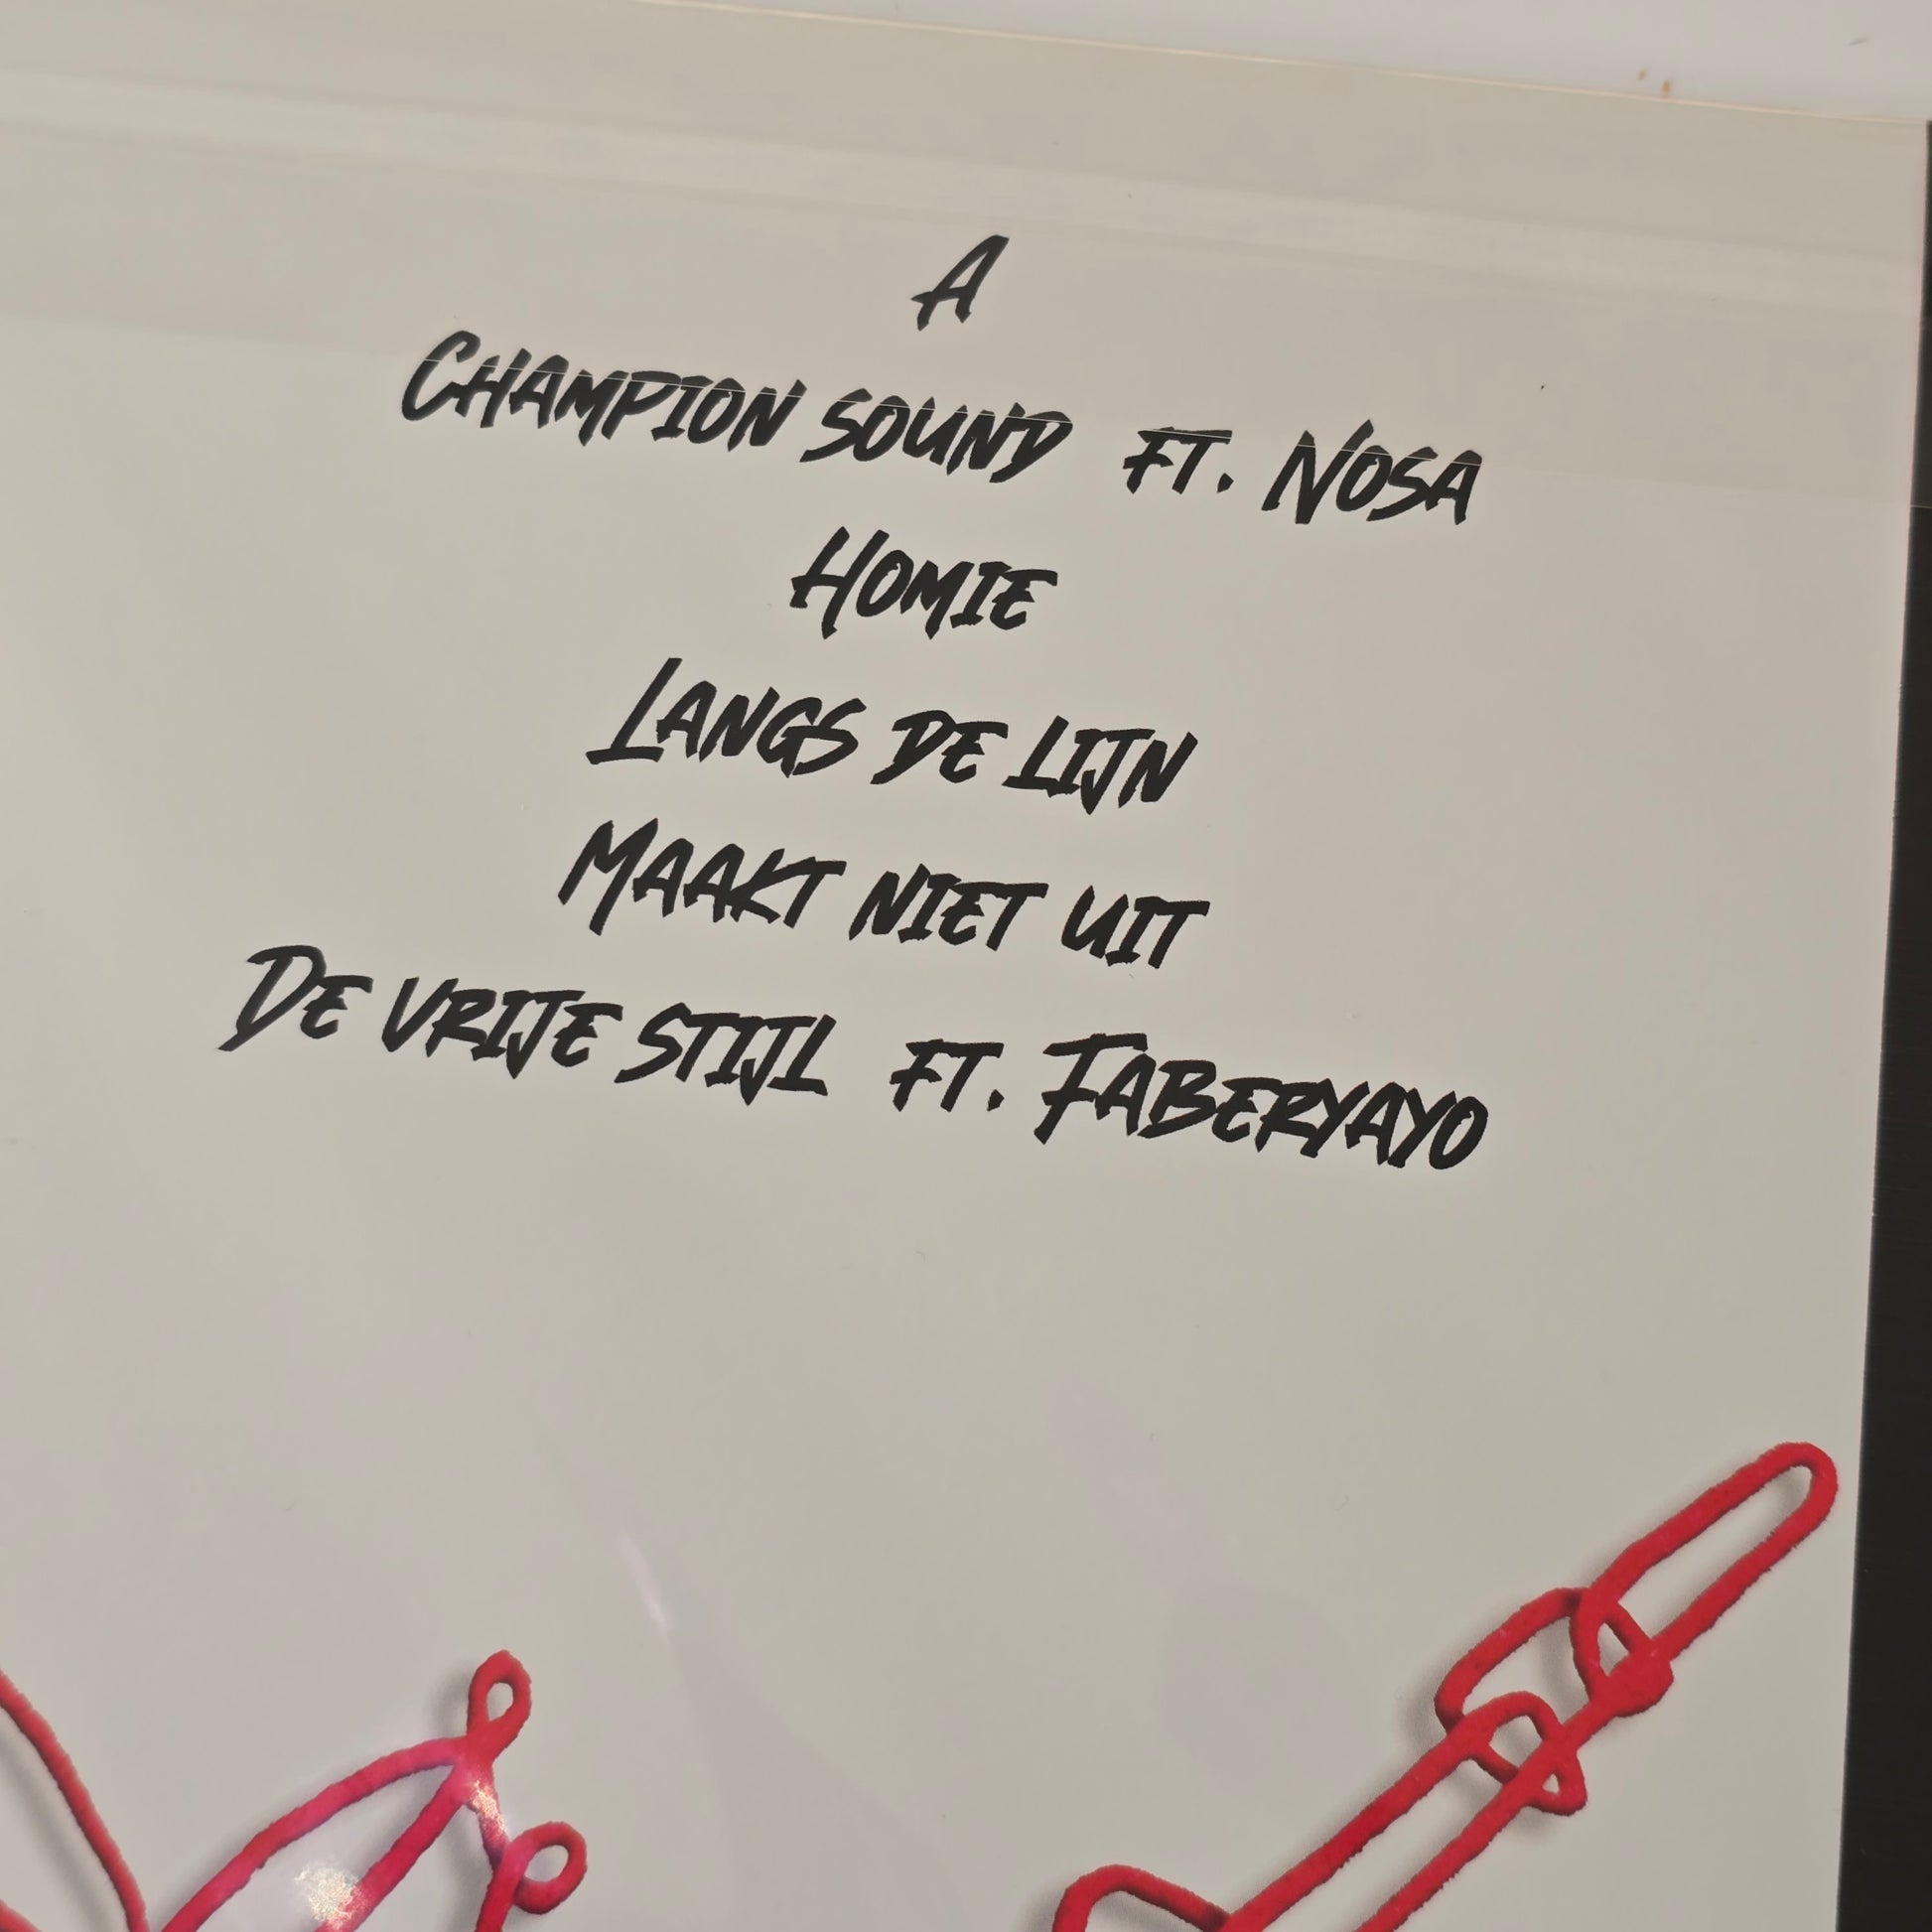 A
Champion sound ft. Nosa
Homie
Langs de lijn
Maakt niet uit
De vrije stijl ft. Faberyayo